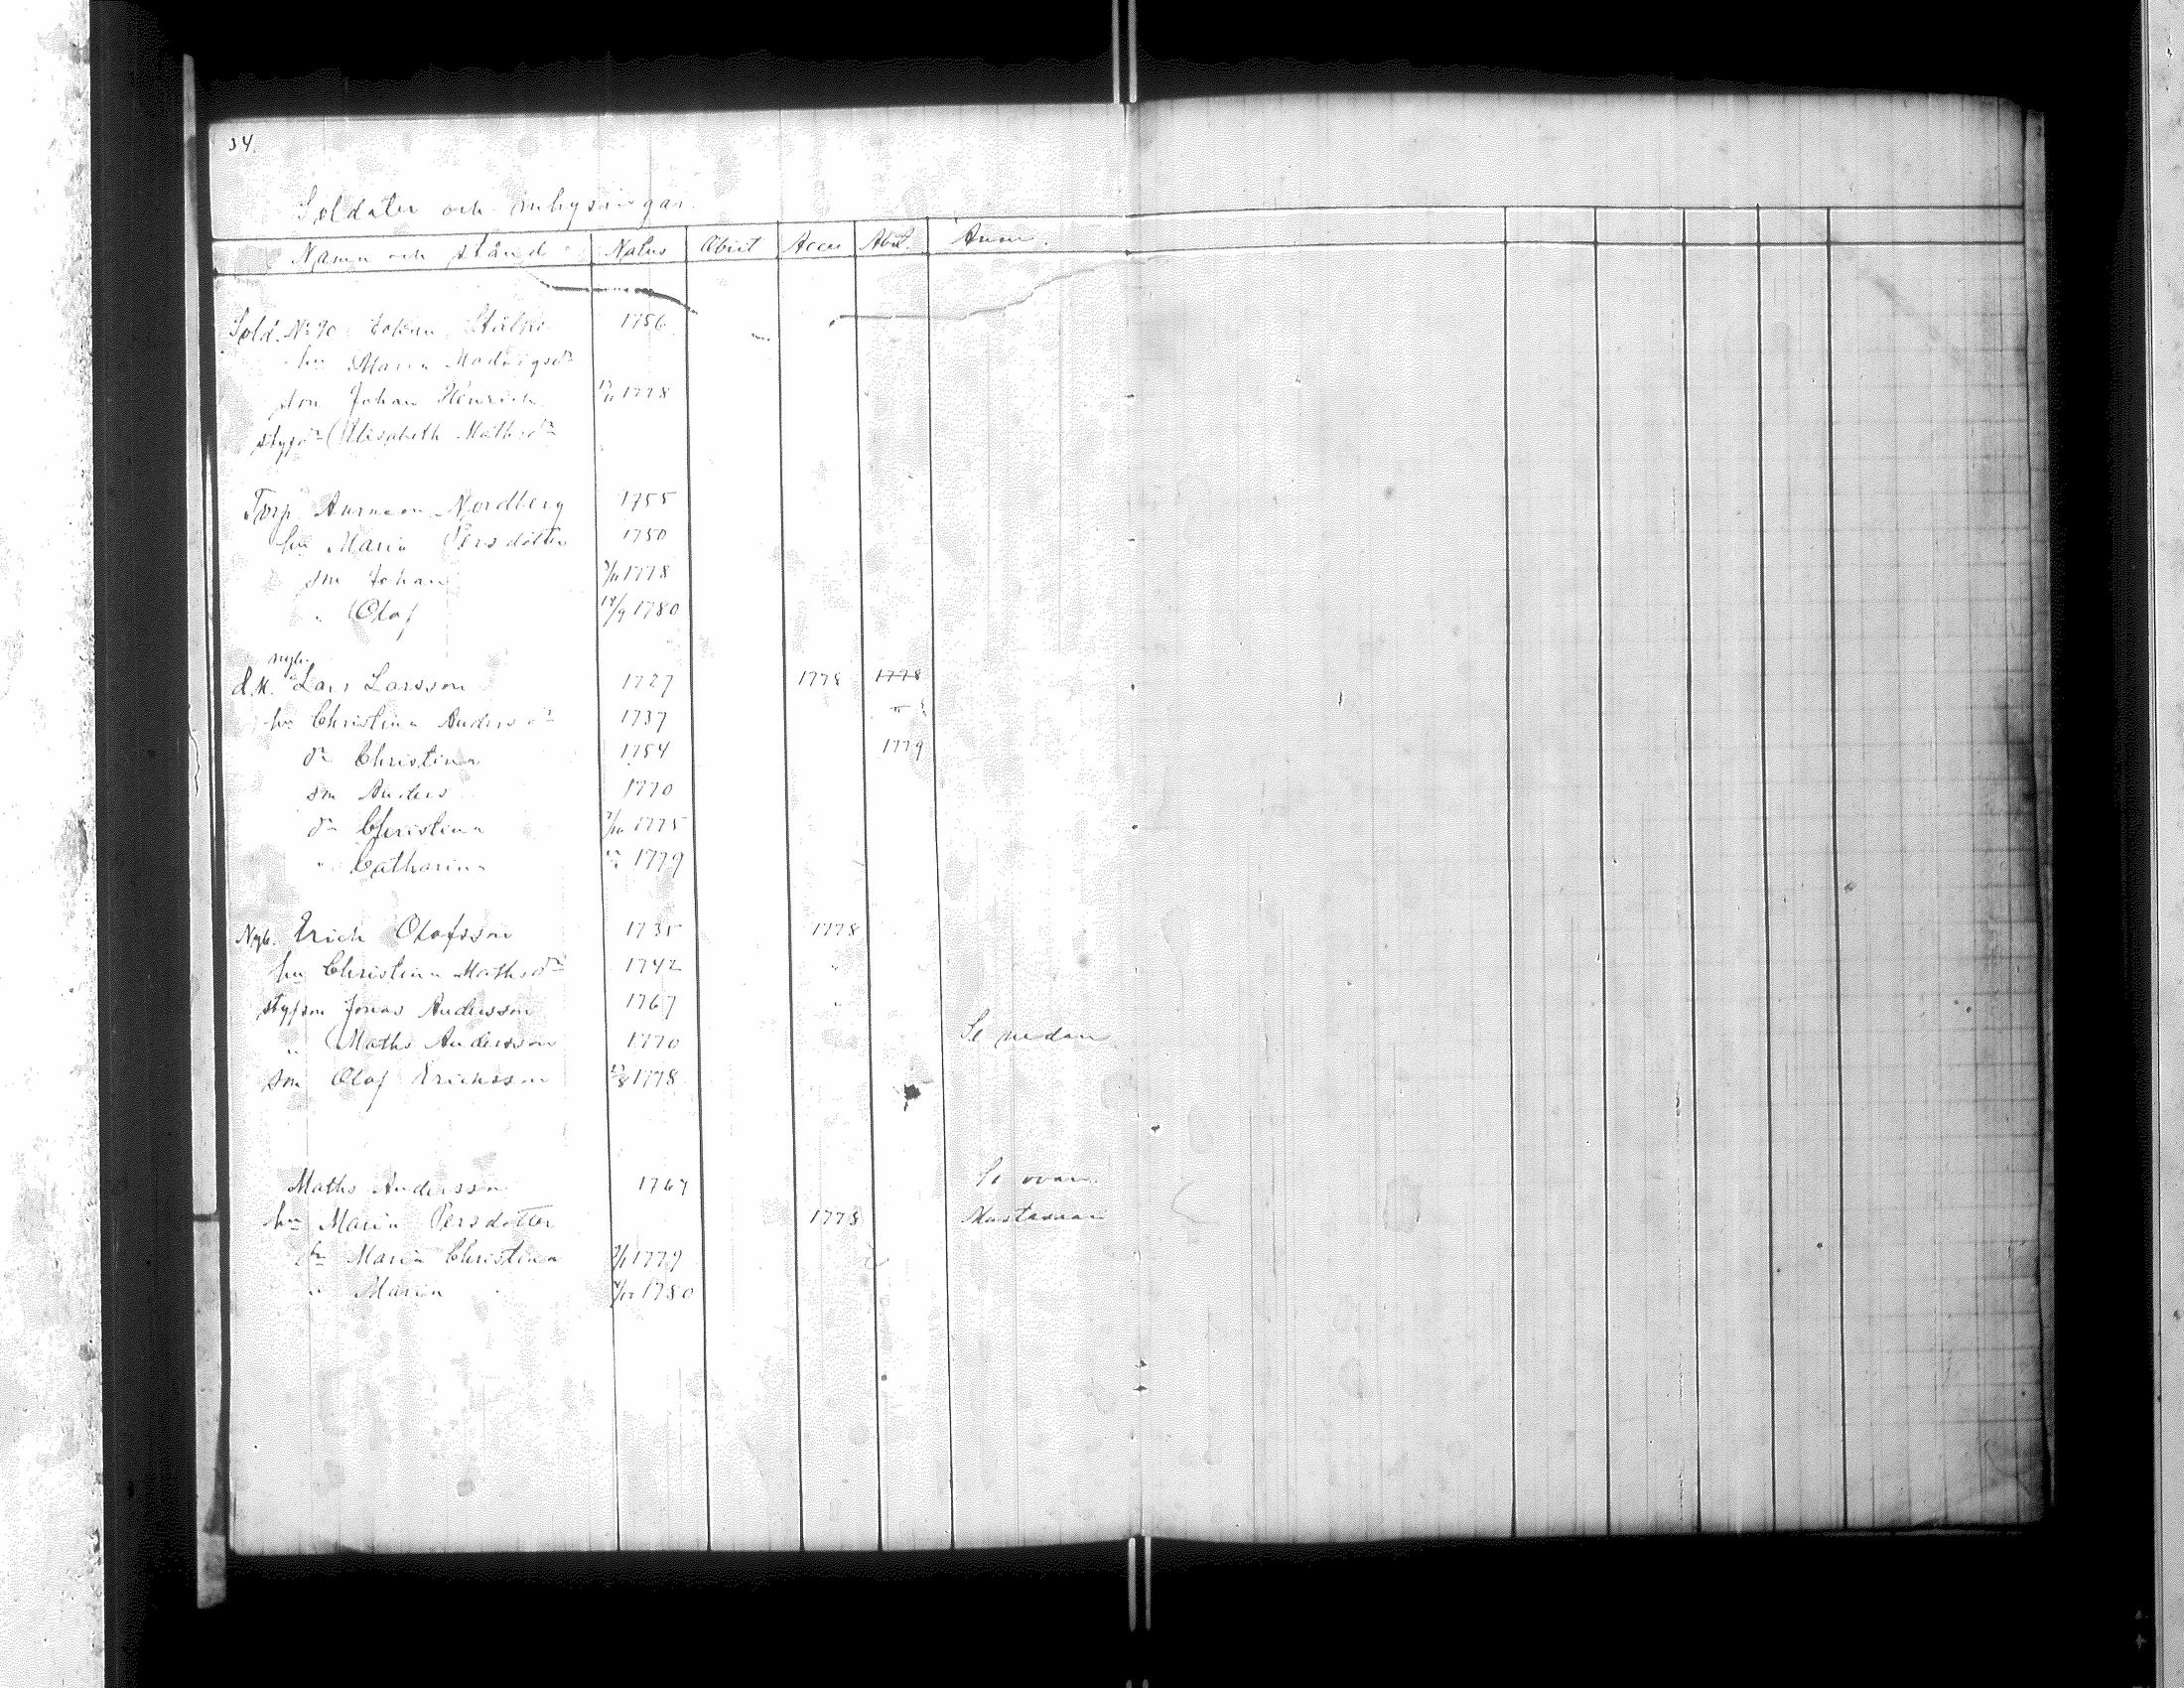 34.
Soldater och inhysningar.
Namn och stånd Natus Obiit Acces Abit. Anm.
Sold. No 90 Johan 1756
hu Maria
son Johan Henrich 1778
stypdr Elisabeth Mathsdr
Torp. Nordberg 1755
hu Maria Persdotter 1750
son Johan 1778
" Olof 19/9 1780
nyb.
d.y. Lars Larsson 1727 1778 1778
hu Christina Andersdr 1737
dr Christina 1754 1779
son Anders 1770
dr Christina 1775
" Catharina 1779
Nyb. Erich Olofsson 1735 1778
hu Christina Mathsdr 1742 "
stypson Jonas Andersson 1767 "
" Maths Andersson 1770 Se nedan
son Olof Erichsson 1778
Maths Andersson 1767 Se ovan.
hu Maria Persdotter 1778 Mustasaari
Maria Christina 1779
" Maria 1780